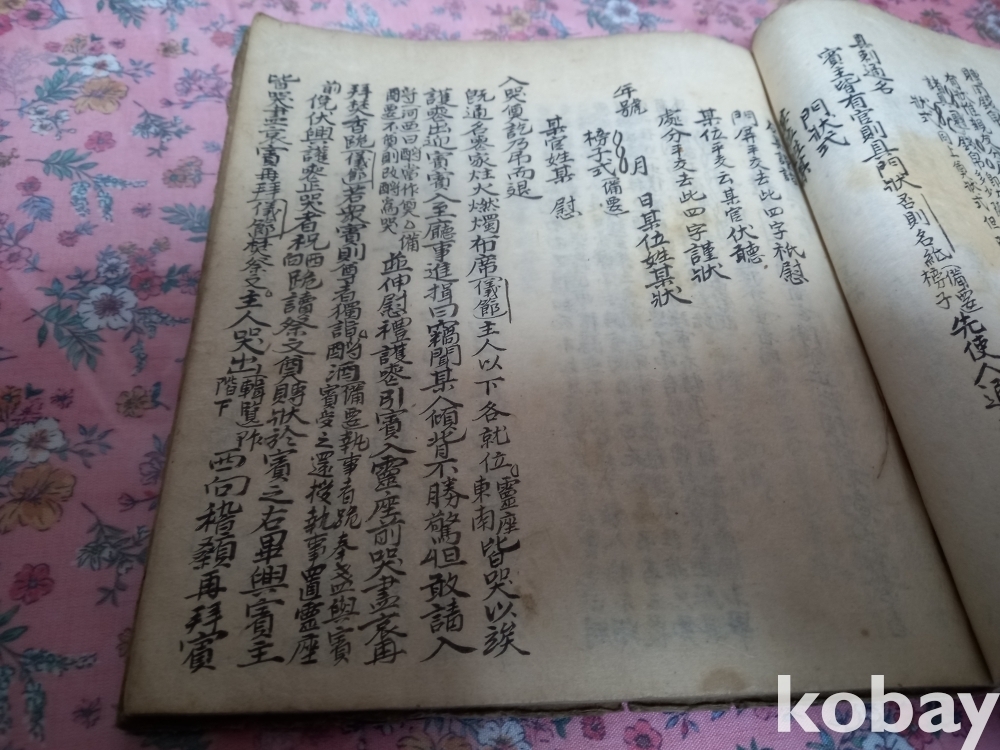 具刺通名
賓主皆有官則具門狀否則名紙備要榜子先使人通
門狀式
某位某官
門屏平交云某官伏聽
處分平交去此四字謹狀
年號月日某位姓某狀
榜子式備要
某官姓某慰
入哭奠訖乃弔而退
旣通名喪家炷火燃燭布席儀節主人以下各就位靈座東南皆哭以俟
護喪出迎賓賓入至廳事進揖曰竊聞某人傾背不勝驚怛敢請入
酹並伸慰禮護喪引賓入靈座前哭盡哀再
拜焚香跪儀節若衆賓則尊者獨詣酹酒備要執事者跪奉盞與賓賓受之還授執事置靈座
前俛伏興護喪止哭者祝西向跪讀祭文奠賻狀於賓之右畢興賓主
皆哭盡哀賓再拜儀節焚祭文主人哭出輯覽阼階下西向稽顙再拜賓
kobay